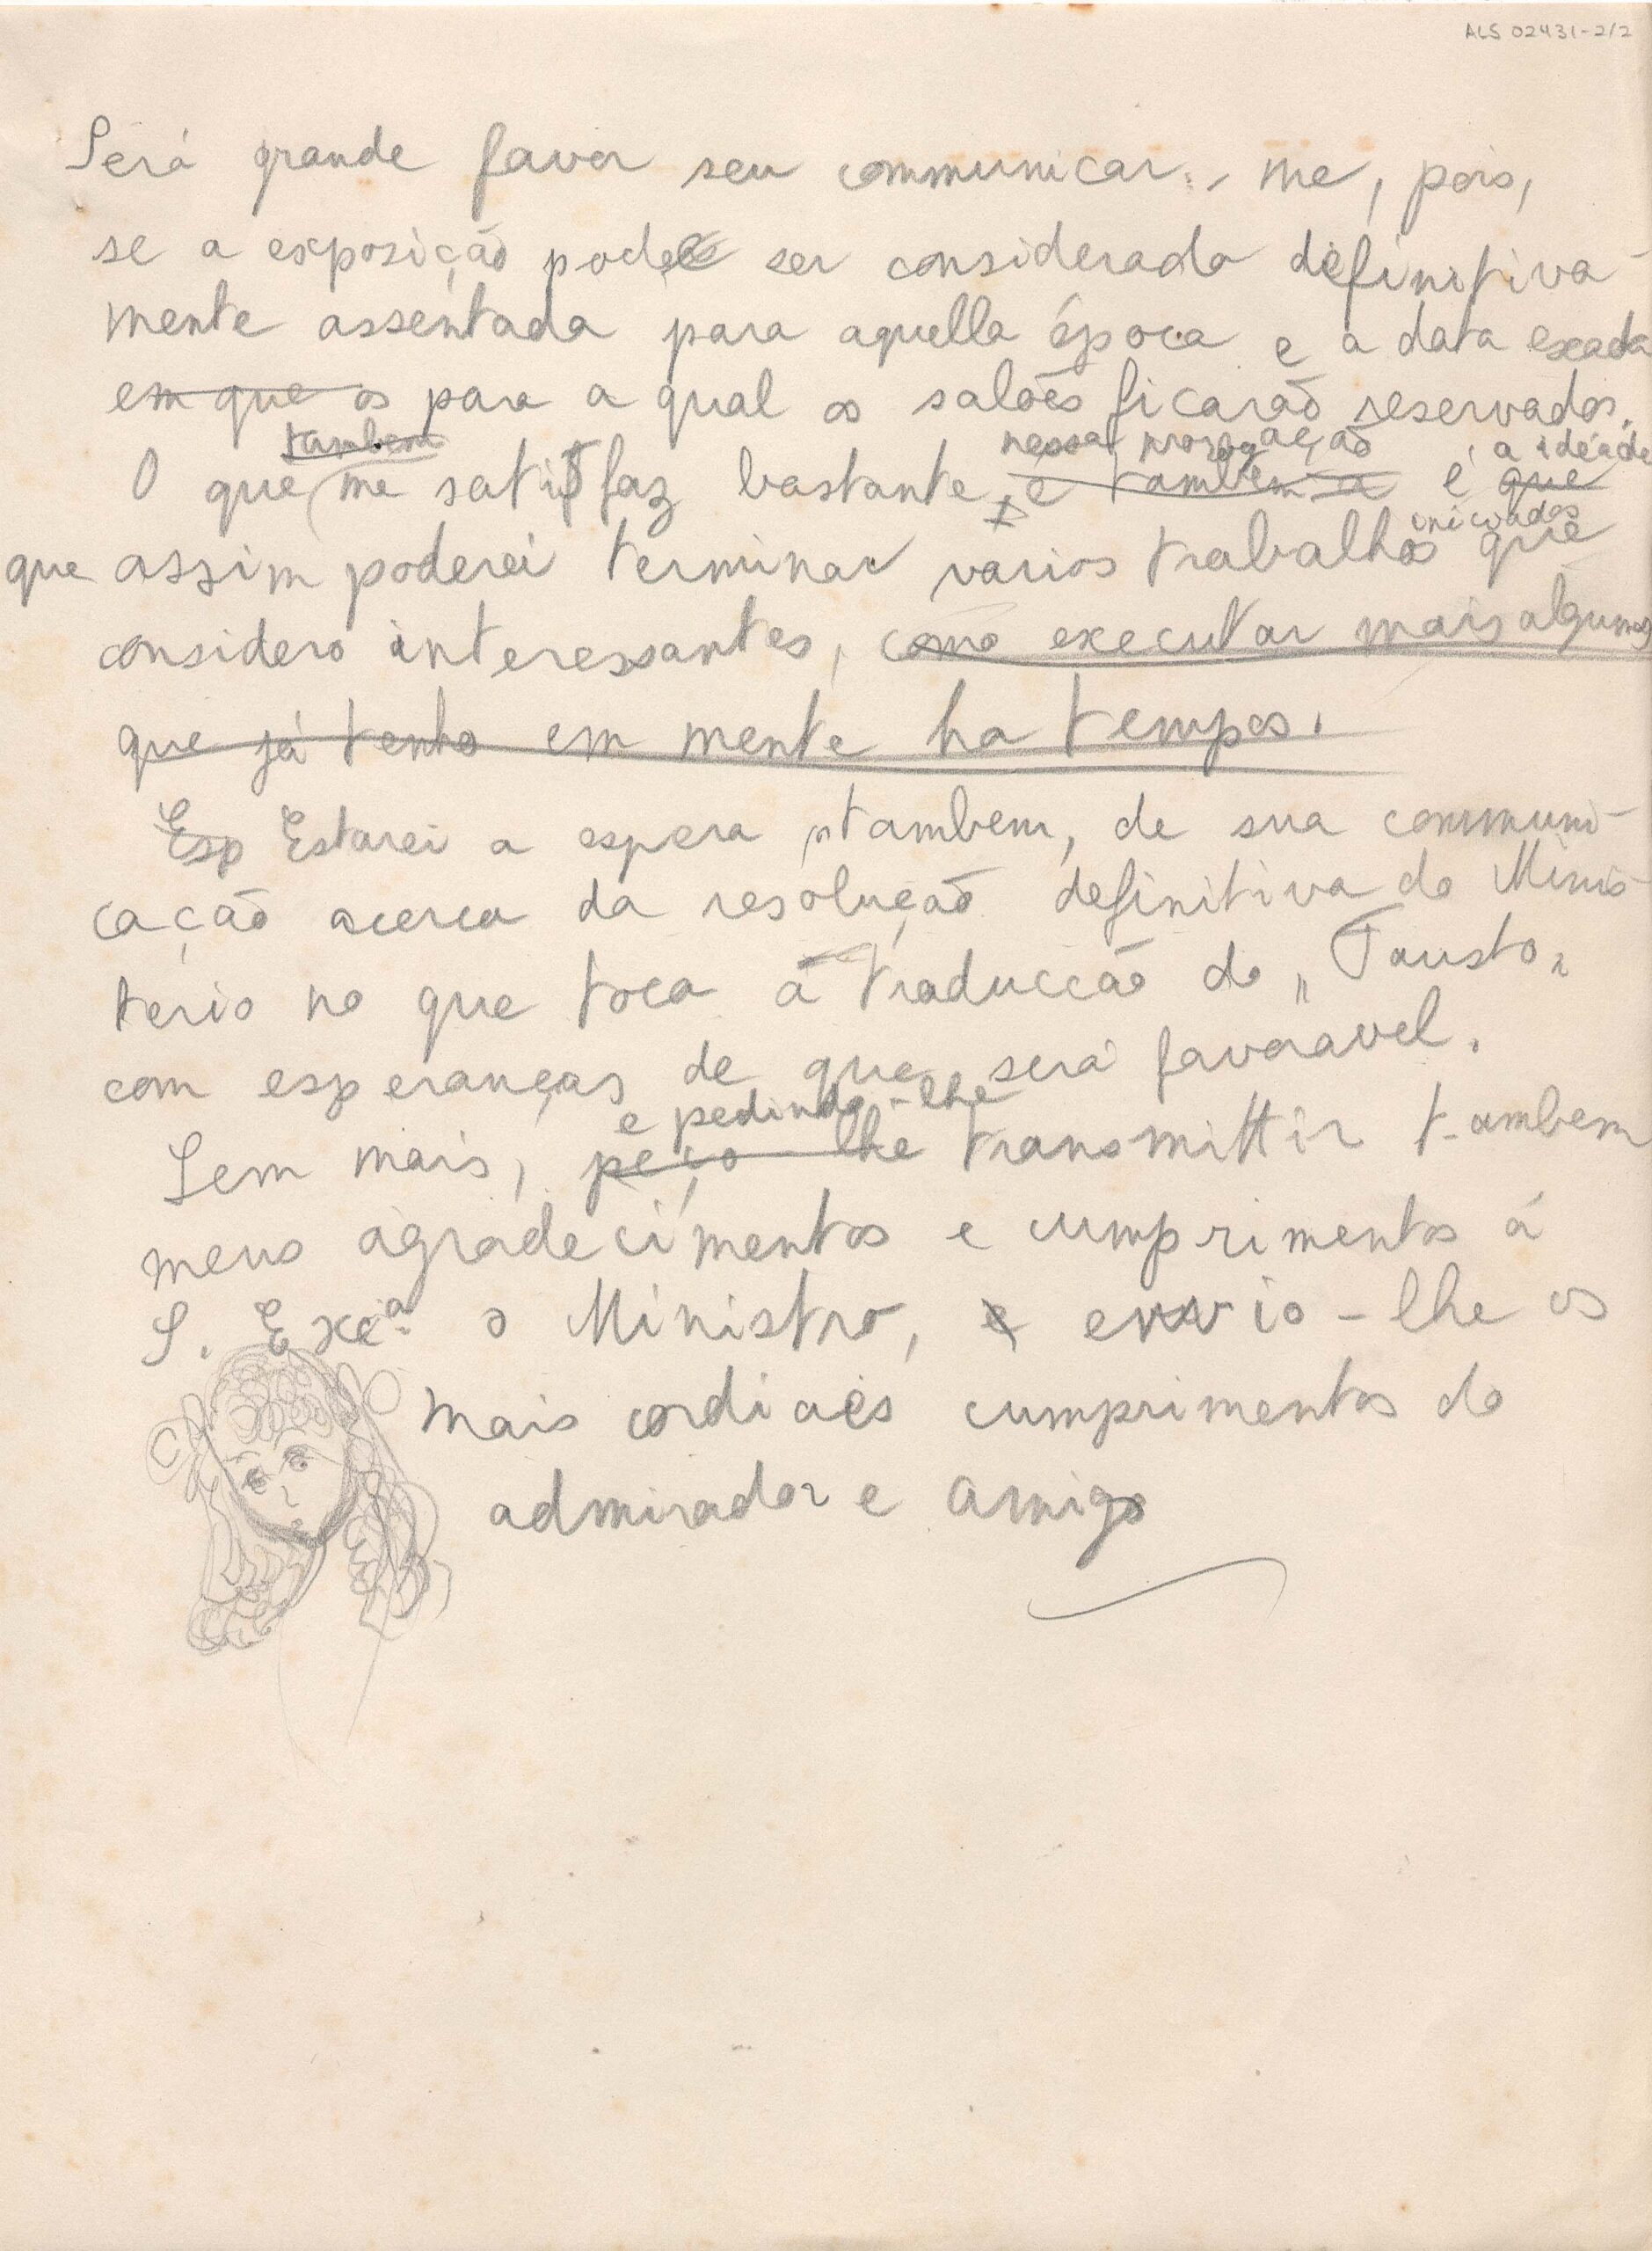 ALS 02431-2/2
Será grande favor seu communicar-me, pois,
se a exposição pode ser considerada definitiva-
mente assentada para aquella época e a data exacta
em que os para a qual os salões ficarão reservados.
tambem nessa prorogação a idéa de
O que me satisfaz bastante, é tambem a é que
iniciados
que assim poderei terminar varios trabalhos que
considero interessantes, como executar mais alguns
que já tenho em mente ha tempos.
Esp Estarei a espera, tambem, de sua communi-
cação acerca da resolução definitiva do Minis-
terio no que toca á traducção do „Fausto„
com esperanças de que será favoravel.
e pedindo-lhe
Sem mais, peço lhe transmittir tambem
meus agradecimentos e cumprimentos á
S. Excia. o Ministro, e envio-lhe os
mais cordiaes cumprimentos do
admirador e amigo